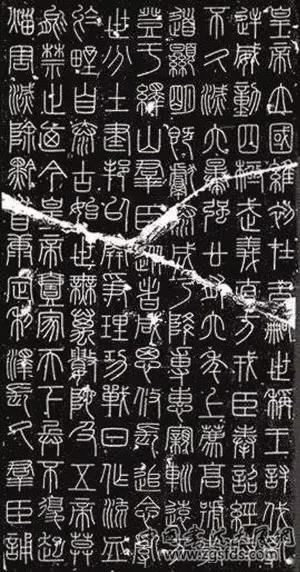 皇帝立國維初在昔嗣世稱王討伐亂
逆威動四極武義直方戎臣奉詔經時
不久滅六暴強廿有六年上薦高號孝
道顯明既獻泰成乃降專惠親巡遠方
登于繹山群臣從者咸思攸長追念亂
世分土建邦以開爭理功戰日作流血
於野自泰古始世無萬數陀及五帝莫
能禁止迺今皇帝壹家天下兵不復起
災害滅除黔首康定利澤長久群臣誦
www.zgsfds.com